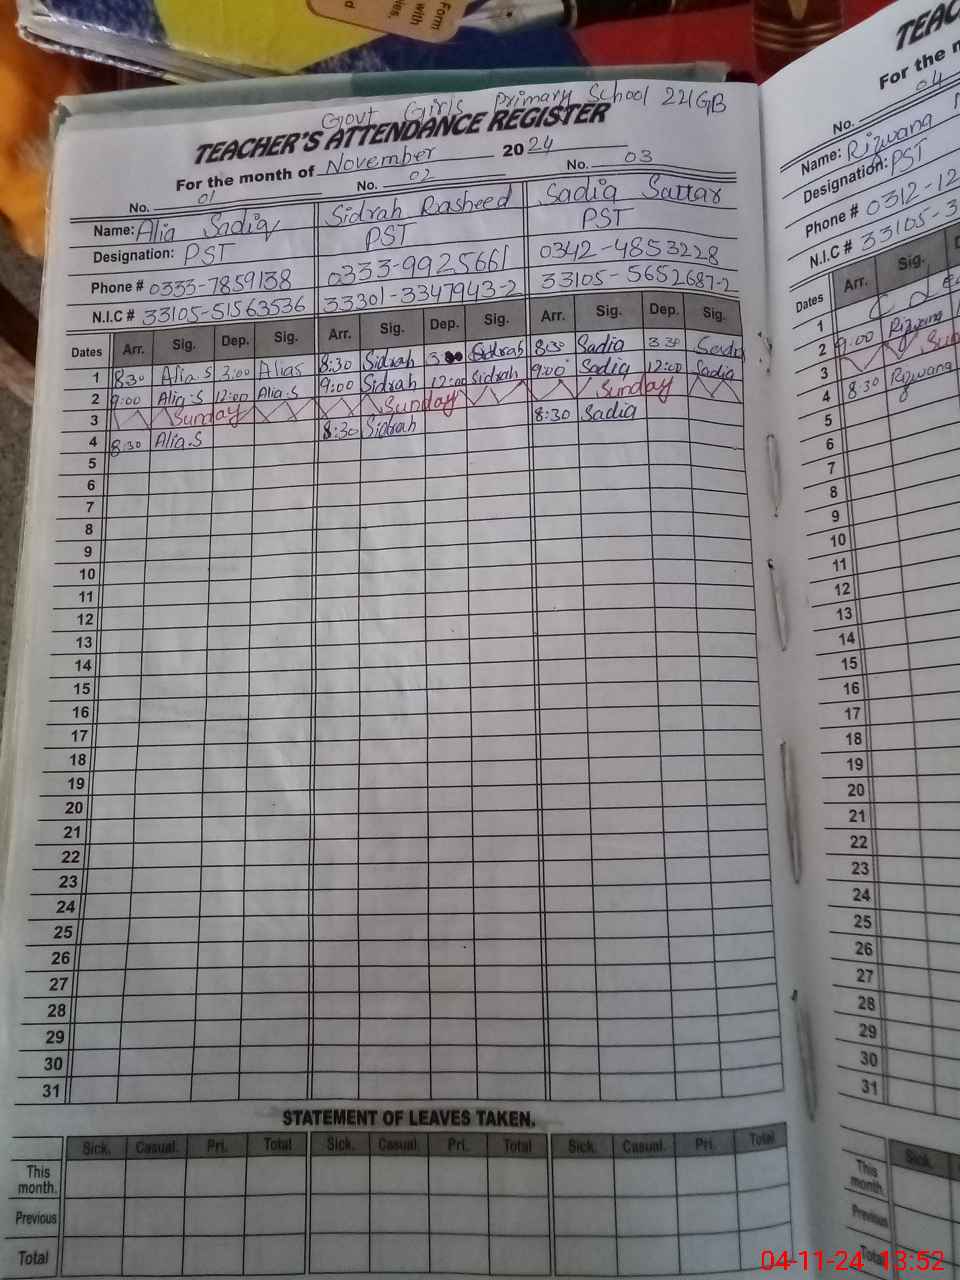 Form
with
Govt Girls Primary School 221GB
TEACHER'S ATTENDANCE REGISTER
For the month of November 2024
No. 01 No. 02 No. 03
Name: Alia Sadiq Sidrah Rasheed Sadia Sattar
Designation: PST PST PST
Phone # 0333-7859138 0333-9925661 0342-4853228
N.I.C # 33105-51563536 33301-3347943-2 33105-5652687-2
Dates Arr. Sig. Dep. Sig. Arr. Sig. Dep. Sig. Arr. Sig. Dep. Sig.
1 8:30 Alia.S 3:00 Alia S 8:30 Sidrah Sidrah 8:30 Sadia 3 30
2 9:00 Alia.S 12:00 Alia.S 9:00 Sidrah 12:00 Sidrah 9:00 Sadia 12:00 Sadia
3 Sunday Sunday Sunday
4 8:30 Alia.S 8:30 Sidrah 8:30 Sadia
5
6
7
8
9
10
11
12
13
14
15
16
17
18
19
20
21
22
23
24
25
26
27
28
29
30
31
STATEMENT OF LEAVES TAKEN.
Sick. Casual. Pri. Total Sick. Casual. Pri. Total Sick. Casual. Pri. Total
This
month.
Previous
Total
TEAC
For the
No. 04
Name: Rizwana
Designation: PST
Phone # 0312-12
N.I.C # 33105-3
Dates Arr. Sig.
1
2 9:00 Rizwana
3 Sun
4 8:30 Rizwana
5
6
7
8
9
10
11
12
13
14
15
16
17
18
19
20
21
22
23
24
25
26
27
28
29
30
31
Sick.
This
month.
Previous
Total
04-11-24 13:52